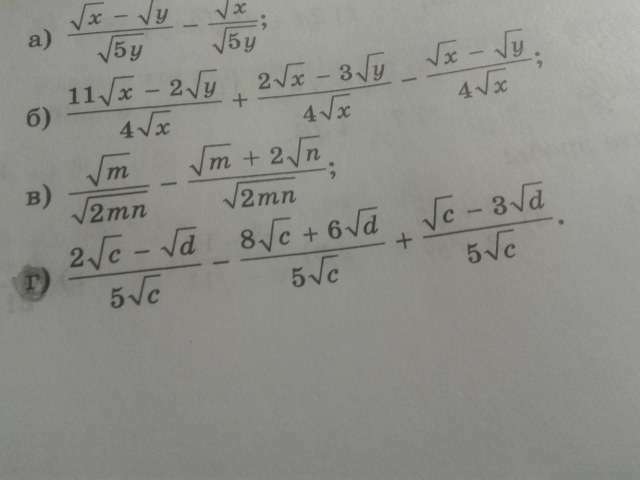 а) (√x − √y)/√(5y) − √x/√(5y);
б) (11√x − 2√y)/(4√x) + (2√x − 3√y)/(4√x) − (√x − √y)/(4√x);
в) √m/√(2mn) − (√m + 2√n)/√(2mn);
г) (2√c − √d)/(5√c) − (8√c + 6√d)/(5√c) + (√c − 3√d)/(5√c).